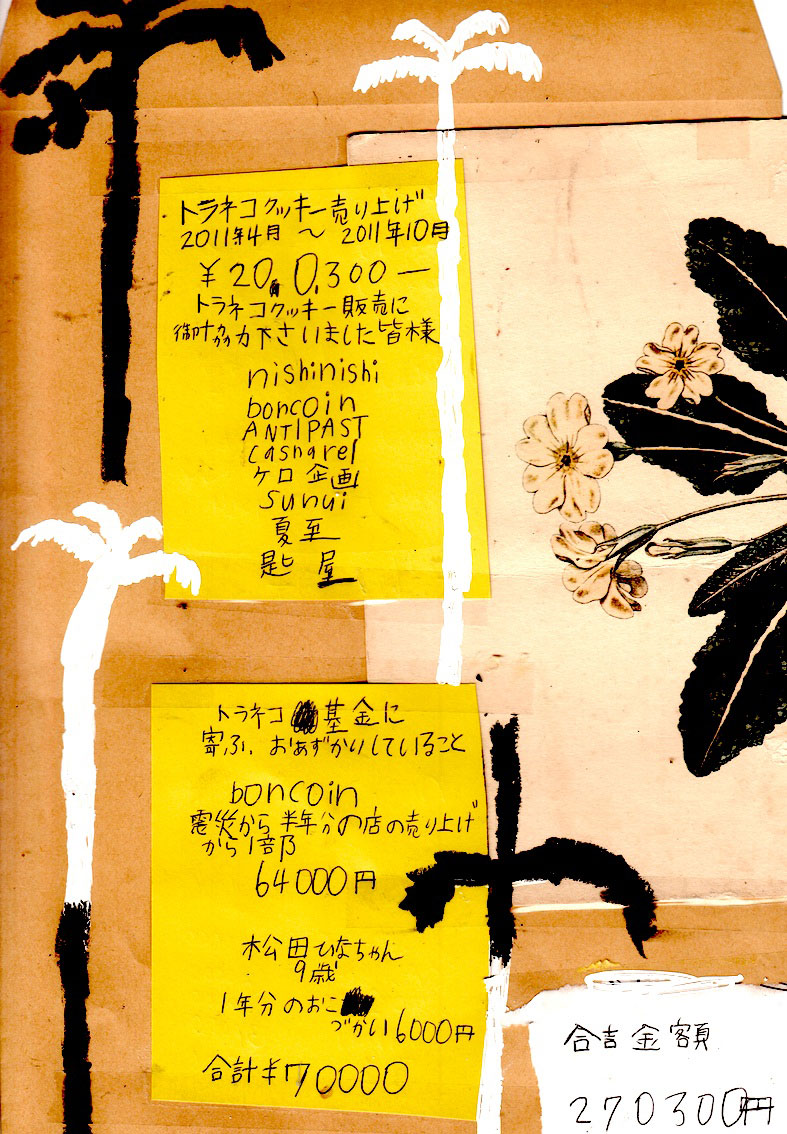 トラネコクッキー売り上げ
2011年4月 〜 2011年10月
¥20,0,300—
トラネコクッキー販売に
御协力下さいました皆様
nishinishi
boncoin
ANTIPAST
casharel
ケロ企画
sunui
夏至
匙屋
トラネコ 基金に
寄ふ、おあずかりしていること
boncoin
震災から半年分の店の売り上げ
から1部
64000円
松田ひなちゃん
9歳
1年分のおこ
づかい6000円
合計¥70000
合吉金額
270300円